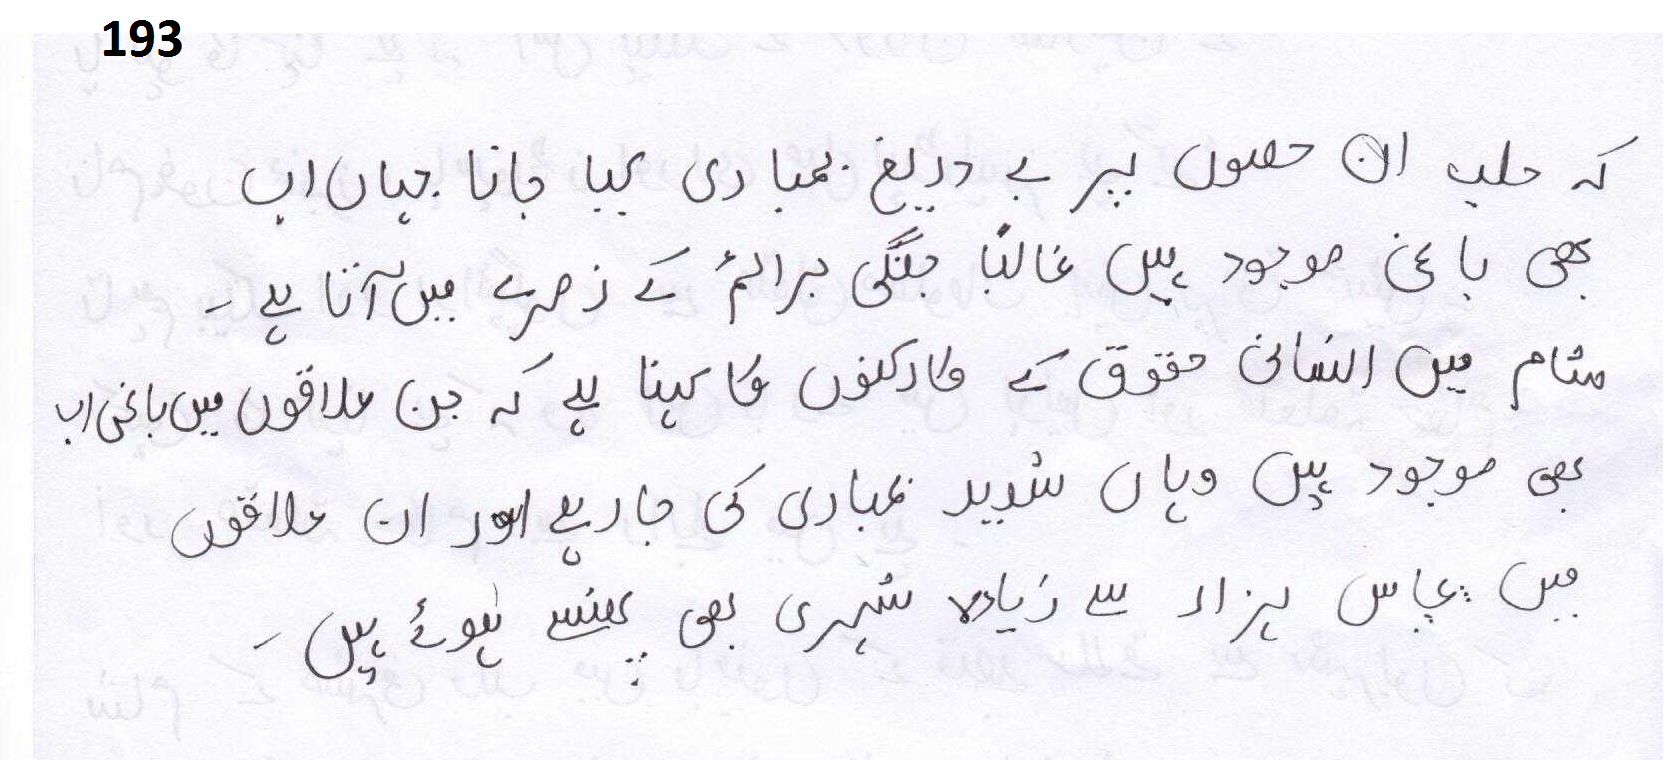 193
کہ حلب ان حصوں پر بے دریغ بمباری کیا جانا جہاں اب
بھی باغی موجود ہیں غالباً جنگی جرائم کے زمرے میں آتا ہے ۔
شام میں انسانی حقوق کے کارکنوں کا کہنا ہے کہ جن علاقوں میں باغی اب
بھی موجود ہیں وہاں شدید بمباری کی جا رہے اور ان علاقوں
میں پچاس ہزار سے زیادہ شہری بھی پھنسے ہوئے ہیں ۔